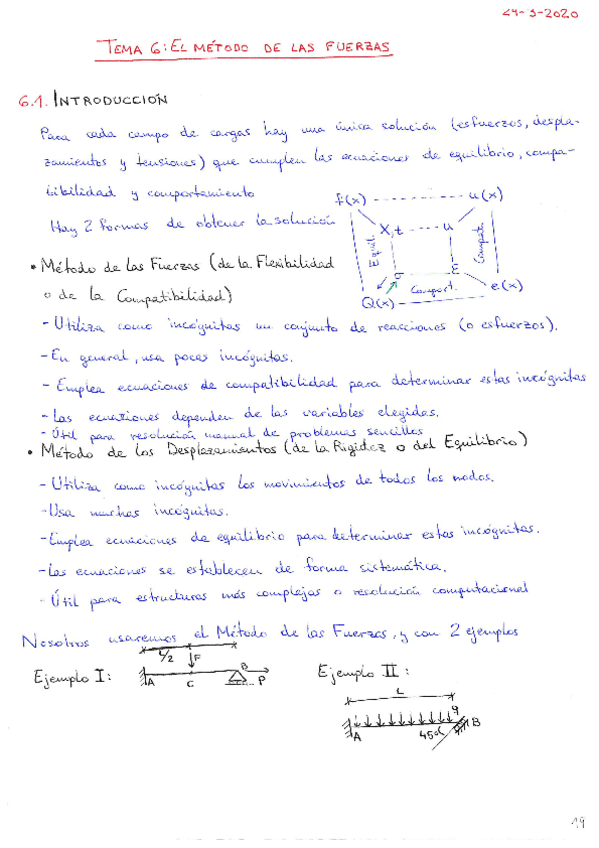 24-3-2020
TEMA 6: EL MÉTODO DE LAS FUERZAS
6.1. INTRODUCCIÓN
Para cada campo de cargas hay una única solución (esfuerzos, despla-
zamientos y tensiones) que cumplen las ecuaciones de equilibrio, compa-
tibilidad y comportamiento
Hay 2 formas de obtener la solución
f(x) u(x)
X,t u
Equil. Compat.
Comport.
Q(x) e(x)
• Método de las Fuerzas (de la Flexibilidad
o de la Compatibilidad)
- Utiliza como incógnitas un conjunto de reacciones (o esfuerzos).
- En general, usa pocas incógnitas.
- Emplea ecuaciones de compatibilidad para determinar estas incógnitas
- Las ecuaciones dependen de las variables elegidas.
- Útil para resolución manual de problemas sencillos
• Método de los Desplazamientos (de la Rigidez o del Equilibrio)
- Utiliza como incógnitas los movimientos de todos los nodos.
- Usa muchas incógnitas.
- Emplea ecuaciones de equilibrio para determinar estas incógnitas.
- Las ecuaciones se establecen de forma sistemática.
- Útil para estructuras más complejas o resolución computacional
Nosotros usaremos el Método de las Fuerzas, y con 2 ejemplos
Ejemplo I:
L/2 F
A C B P
Ejemplo II:
L
q
A 45º B
19